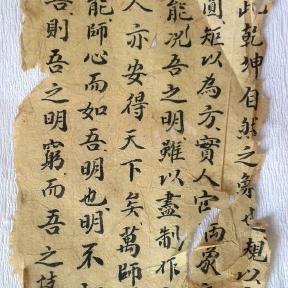 此乾坤自然之象也規以
圓矩以為方實人官兩象
能況吾之明雖以盡制作
人亦安得天下矣萬師
能師心而如吾明也明不
吾則吾之明窮而吾之技